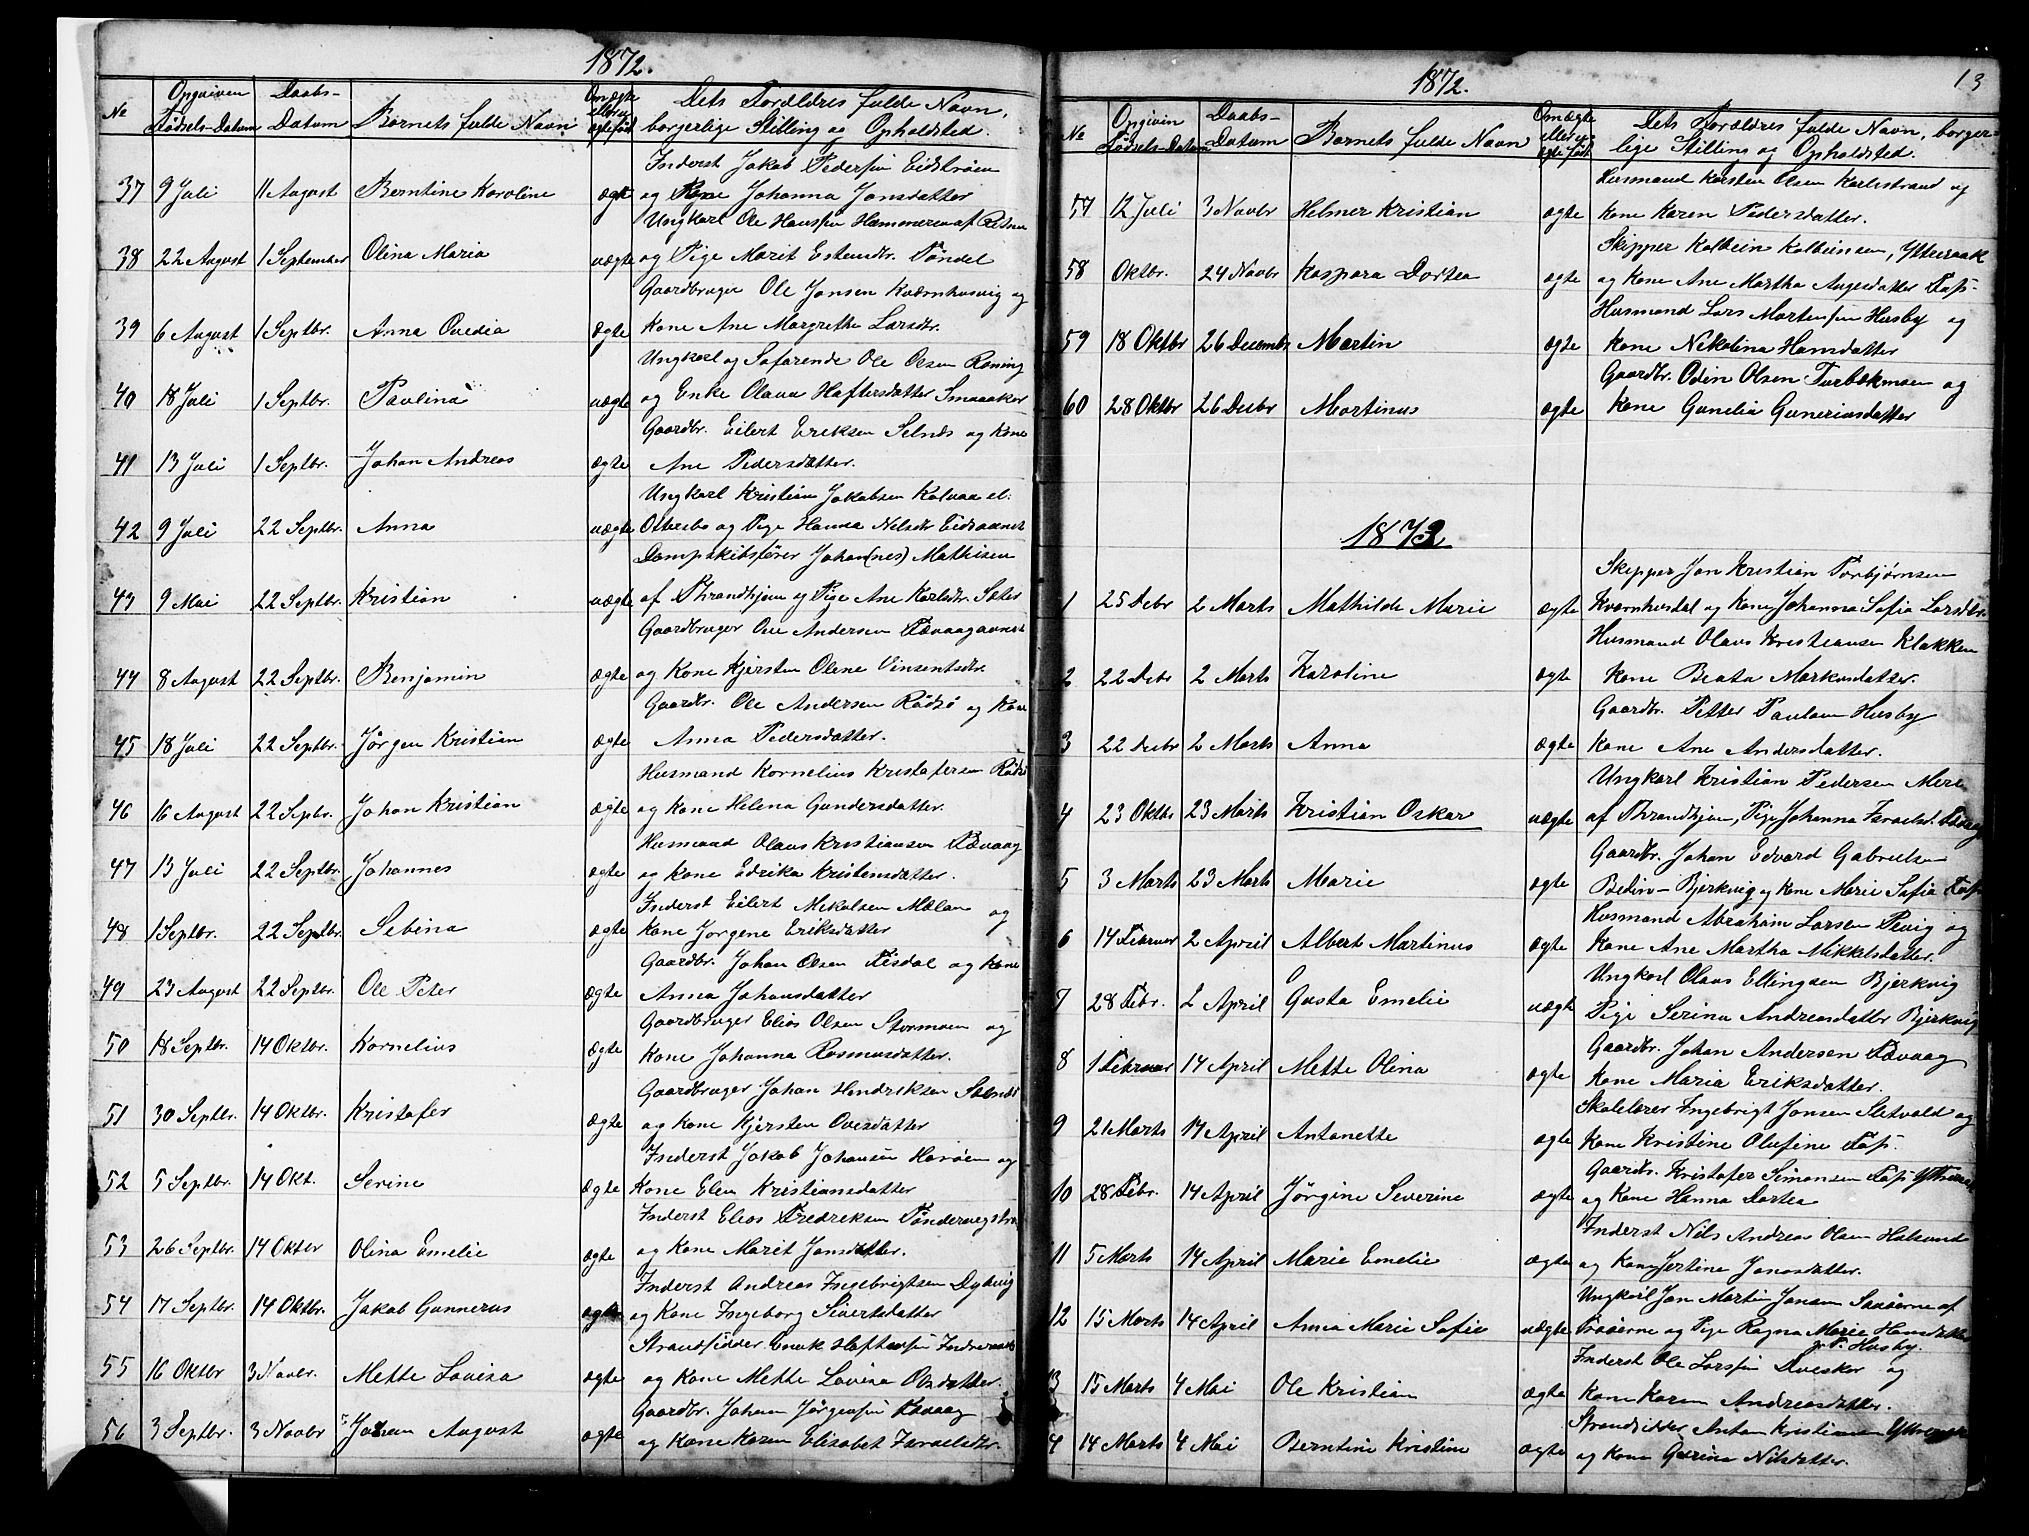 1872.
No
Opgiven Fødsels-Datum
Daabs-Datum
Barnets fulde Navn
Om ægte eller uægte født
Dets Forældres fulde Navn, borgerlige Stilling og Opholdsted.
Inderst Jakob Pedersen Eidstrøen
37 9 Juli 11 August Berntine Karoline ægte og Kone Johanna Jonsdatter
Ungkarl Ole Hansen Hammeren af
38 22 August 1 September Olina Maria uægte og Pige Marit Estensdtr. Tøndel
Gaardbruger Ole Jonsen Kværnhusvig og
39 6 August 1 Septbr. Anna Ovedia ægte Kone Ane Margrethe Larsdtr.
Ungkarl og Søfarende Ole Olsen Røning
40 18 Juli 1 Septbr. Paulina uægte og Enke Olava Haftorsdatter Smaaaker
Gaardbr. Eilert Eriksen Selnes og Kone
41 13 Juli 1 Septbr. Johan Andreas ægte Ane Pedersdatter.
Ungkarl Kristian Jakobsen Kalvaa el:
42 9 Juli 22 Septbr. Anna uægte og Pige Hanna Nilsdtr
Dampskibsfører Johan(nes) Mathisen
43 9 Mai 22 Septbr. Kristian uægte af Thrandhjem og Pige Ane Karlsdtr. Sæter
Gaardbruger Ole Andersen
44 8 August 22 Septbr. Benjamin ægte og Kone Kjersten Olene Vinsentsdtr.
Gaardbr. Ole Andersen Rødsø og Kone
45 18 Juli 22 Septbr. Jørgen Kristian ægte Anna Pedersdatter.
Husmand Kornelius Kristofersen Rødsø
46 16 August 22 Septbr. Johan Kristian ægte og Kone Helena Gundersdatter.
Husmand Olaus Kristiansen Tævaag
47 13 Juli 22 Septbr. Johannes ægte og Kone Edrika Kristensdatter.
Inderst Eilert Mikalsen Mælan og
48 1 Septbr. 22 Septbr. Sebina ægte Kone Jørgene Eriksdatter
Gaardbr. Johan Olsen Tisdal og Kone
49 23 August 22 Septbr. Ole Peter ægte Anna Johansdatter
Gaardbruger Elias Olsen Stormoen og
50 18 Septbr. 14 Oktbr. Kornelius ægte Kone Johanna Rasmusdatter.
Gaardbruger Johan Hendriksen Selnes
51 30 Septbr. 14 Oktbr. Kristofer ægte og Kone Kjersten Oversdatter
Inderst Jakob Johansen Harøen og
52 5 Septbr. 14 Okt. Serine ægte Kone Elen Kristiansdatter
Inderst Elias Fredriksen
53 26 Septbr. 14 Oktbr Olina Emelie ægte og Kone Marit Jonsdatter.
Inderst Andreas Ingebrigtsen Dybvig
54 17 Septbr. 14 Oktbr. Jakob Gunnerus ægte og Kone Ingeborg Sivertsdatter
Strandsidder Enok Haftorsen
55 16 Oktbr 3 Novbr. Mette Lovisa ægte og Kone Mette Lovisa Olsdatter.
Gaardbr. Johan Jørgensen Tævaag
56 3 Septbr. 3 Novbr Johan August ægte og Kone Karen Elisabet Israelsdtr.
13
1872.
No
Opgiven Fødsels-Datum
Daabs-Datum
Barnets fulde Navn
Om ægte eller uægte født
Dets Forældres fulde Navn, borgerlige Stilling og Opholdsted.
Husmand Karsten Olsen Karlsstrand og
57 12 Juli 3 Novbr Helmer Kristian ægte Kone Karen Pedersdatter.
Skipper Kolbein Kolbeinsen, Ytteraak
58 Oktbr. 24 Novbr Kaspara Dortea ægte og Kone Ane Martha Aagesdatter
Husmand Lars Mortensen Husby og
59 18 Oktbr 26 Decembr Martin ægte Kone Nikolina Hansdatter
Gaardbr. Odin Olsen Turbekmoen og
60 28 Oktbr 26 Decbr Martinus ægte Kone Gunelia Guneriusdatter
1873
Skipper Jon Kristian Torbjørnsen
1 25 Debr 2 Marts Mathilde Marie ægte Kværnhusdal og Kone Johanna Sofia Larsdtr.
Husmand Olaus Kristiansen Klakken
2 22 Debr 2 Marts Karoline ægte Kone Beata Markusdatter.
Gaardbr. Petter Paulsen Husby
3 22 Decbr 2 Marts Anna ægte Kone Ane Andersdatter.
Ungkarl Kristian Pedersen
4 23 Oktbr 23 Marts Kristian Oskar uægte af Thrandhjem, Pige Johanna Israelsd. Tævaag
Gaardbr. Johan Edvard Gabrielsen
5 3 Marts 23 Marts Marie ægte Bedin-Bjerkvig og Kone Marie Sofia
Husmand Abraham Larsen Tevig og
6 14 Februar 2 April Albert Martinus ægte Kone Ane Martha Mikkelsdatter.
Ungkarl Olaus Ellingsen Bjerkvig
7 28 Febr. 2 April Gusta Emelie uægte Pige Serina Andreasdatter Bjerkvig
Gaardbr. Johan Andersen Tævaag
8 1 Februar 14 April Mette Olina ægte Kone Maria Eriksdatter.
Skolelærer Ingebrigt Jonsen Sletvold og
9 21 Marts 14 April Antonette ægte Kone Kristine Olufine
Gaardbr. Kristofer Simonsen
10 28 Febr. 14 April Jørgine Severine ægte og Kone Hanna Dortea
Inderst Nils Andreas Olsen
11 5 Marts 14 April Marie Emelie ægte og Kone Jertine Jonasdatter.
Ungkarl Jon Martin Jonsen
12 15 Marts 14 April Anna Marie Sofie uægte og Pige Ragna Marie Hansdatter
p. T. Husby.
Inderst Ole Larsen og
13 15 Marts 4 Mai Ole Kristian ægte Kone Karen Andreasdatter.
Strandsidder Anton Kristiansen
4 14 Marts 4 Mai Berntine Kristine ægte og Kone Gurine Nilsdatter.